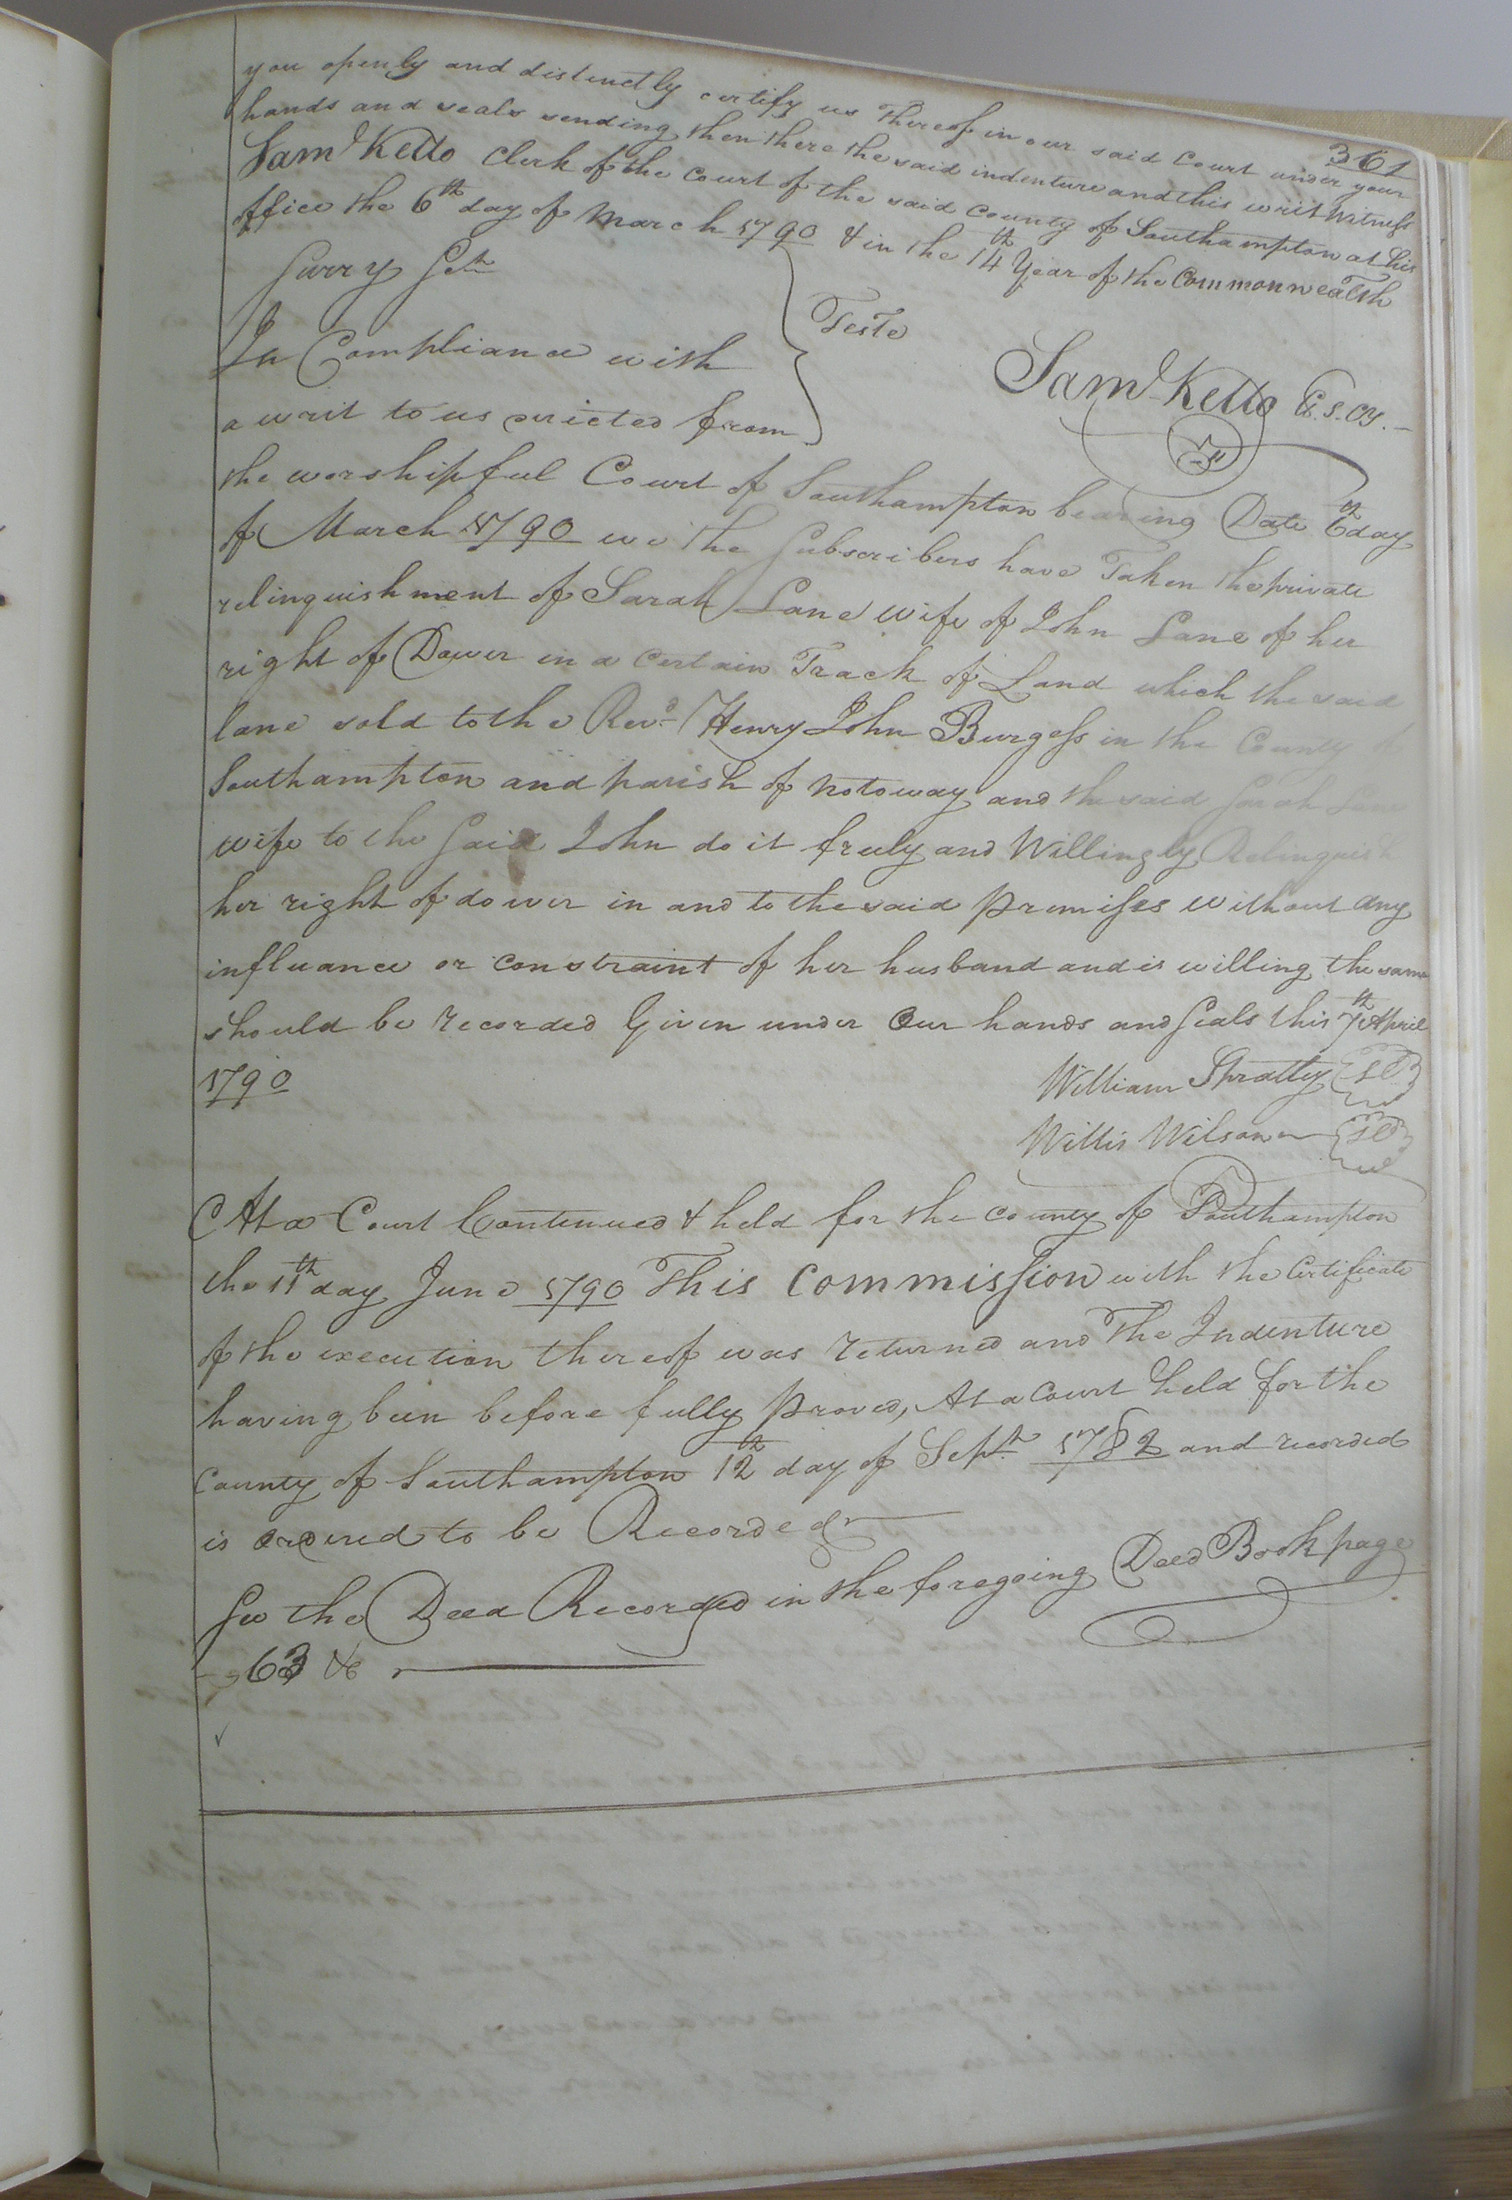 361
you openly and distinctly certify us Thereof in our said Court under your
hands and seals sending then there the said indenture and this writ Witness
Saml Kello Clerk of the Court of the said County of Southampton at his
office the 6th day of March 1790 & in the 14th Year of the Commonwealth
Surry Sct
Teste
Saml Kello C.S.Cy.
In Compliance with
a writ to us directed from
the worshipful Court of Southampton bearing Date 6th day
of March 1790 we the Subscribers have Taken the private
relinquishment of Sarah Lane wife of John Lane of her
right of Dower in a Certain Track of Land which the said
lane sold to the Revd Henry John Burgess in the County of
Southampton and parish of Notoway and the said Sarah Lane
wife to the Said John do it freely and Willingly Relinquish
her right of dower in and to the said Premisses without any
influance or constraint of her husband and is willing the same
should be recorded Given under Our hands and Seals this 7th April
1790
William Spratley
Willis Wilson
At a Court Continued & held for the County of Southampton
the 11th day June 1790 This Commission with the Certificate
of the execution thereof was returned and The Indenture
having been before fully Proved, At a Court held for the
County of Southampton 12th day of Sept. 1782 and recorded
is ordered to be Recorded
See the Deed Recorded in the foregoing Deed Book page
63 &c